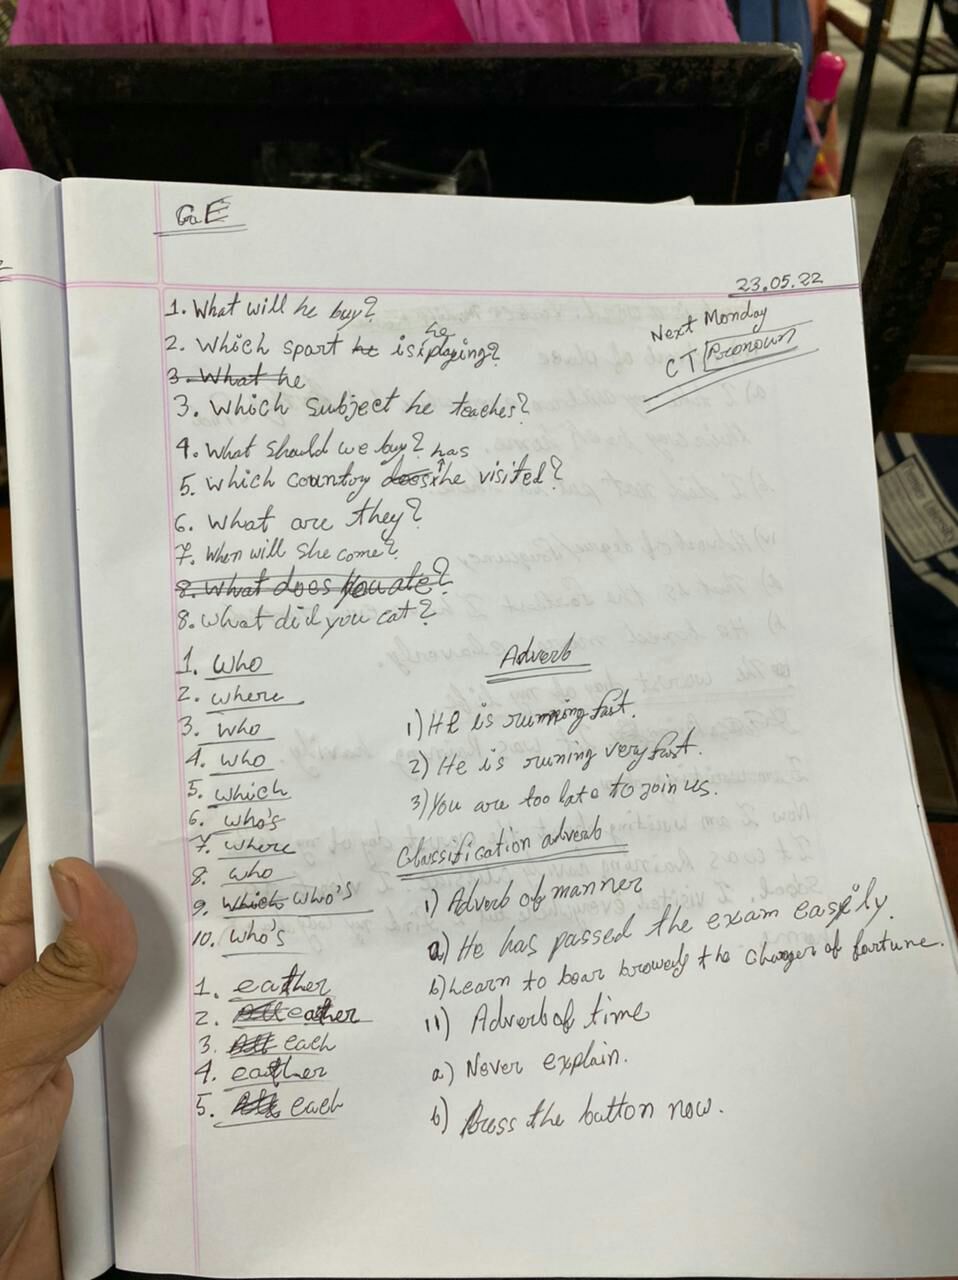 G.E
23.05.22
Next Monday
CT Pronoun
1. What will he buy?
2. Which spart he is playing?
3. What he
3. Which subject he teaches?
4. What should we buy?
5. Which country does has he visited?
6. What are they?
7. When will she come?
8. What does you ate?
8. What did you eat?
1. Who
2. where
3. who
4. who
5. which
6. who's
7. where
8. who
9. Which who's
10. who's
1. eather
2. eather
3. each
4. eather
5. each
Adverb
1) He is running fast.
2) He is runing very fast.
3) You are too late to join us.
Classification adverb
i) Adverb of manner
a) He has passed the exam easily.
b) Learn to bear the of fortune.
ii) Adverb of time
a) Never explain.
b) Press the button now.